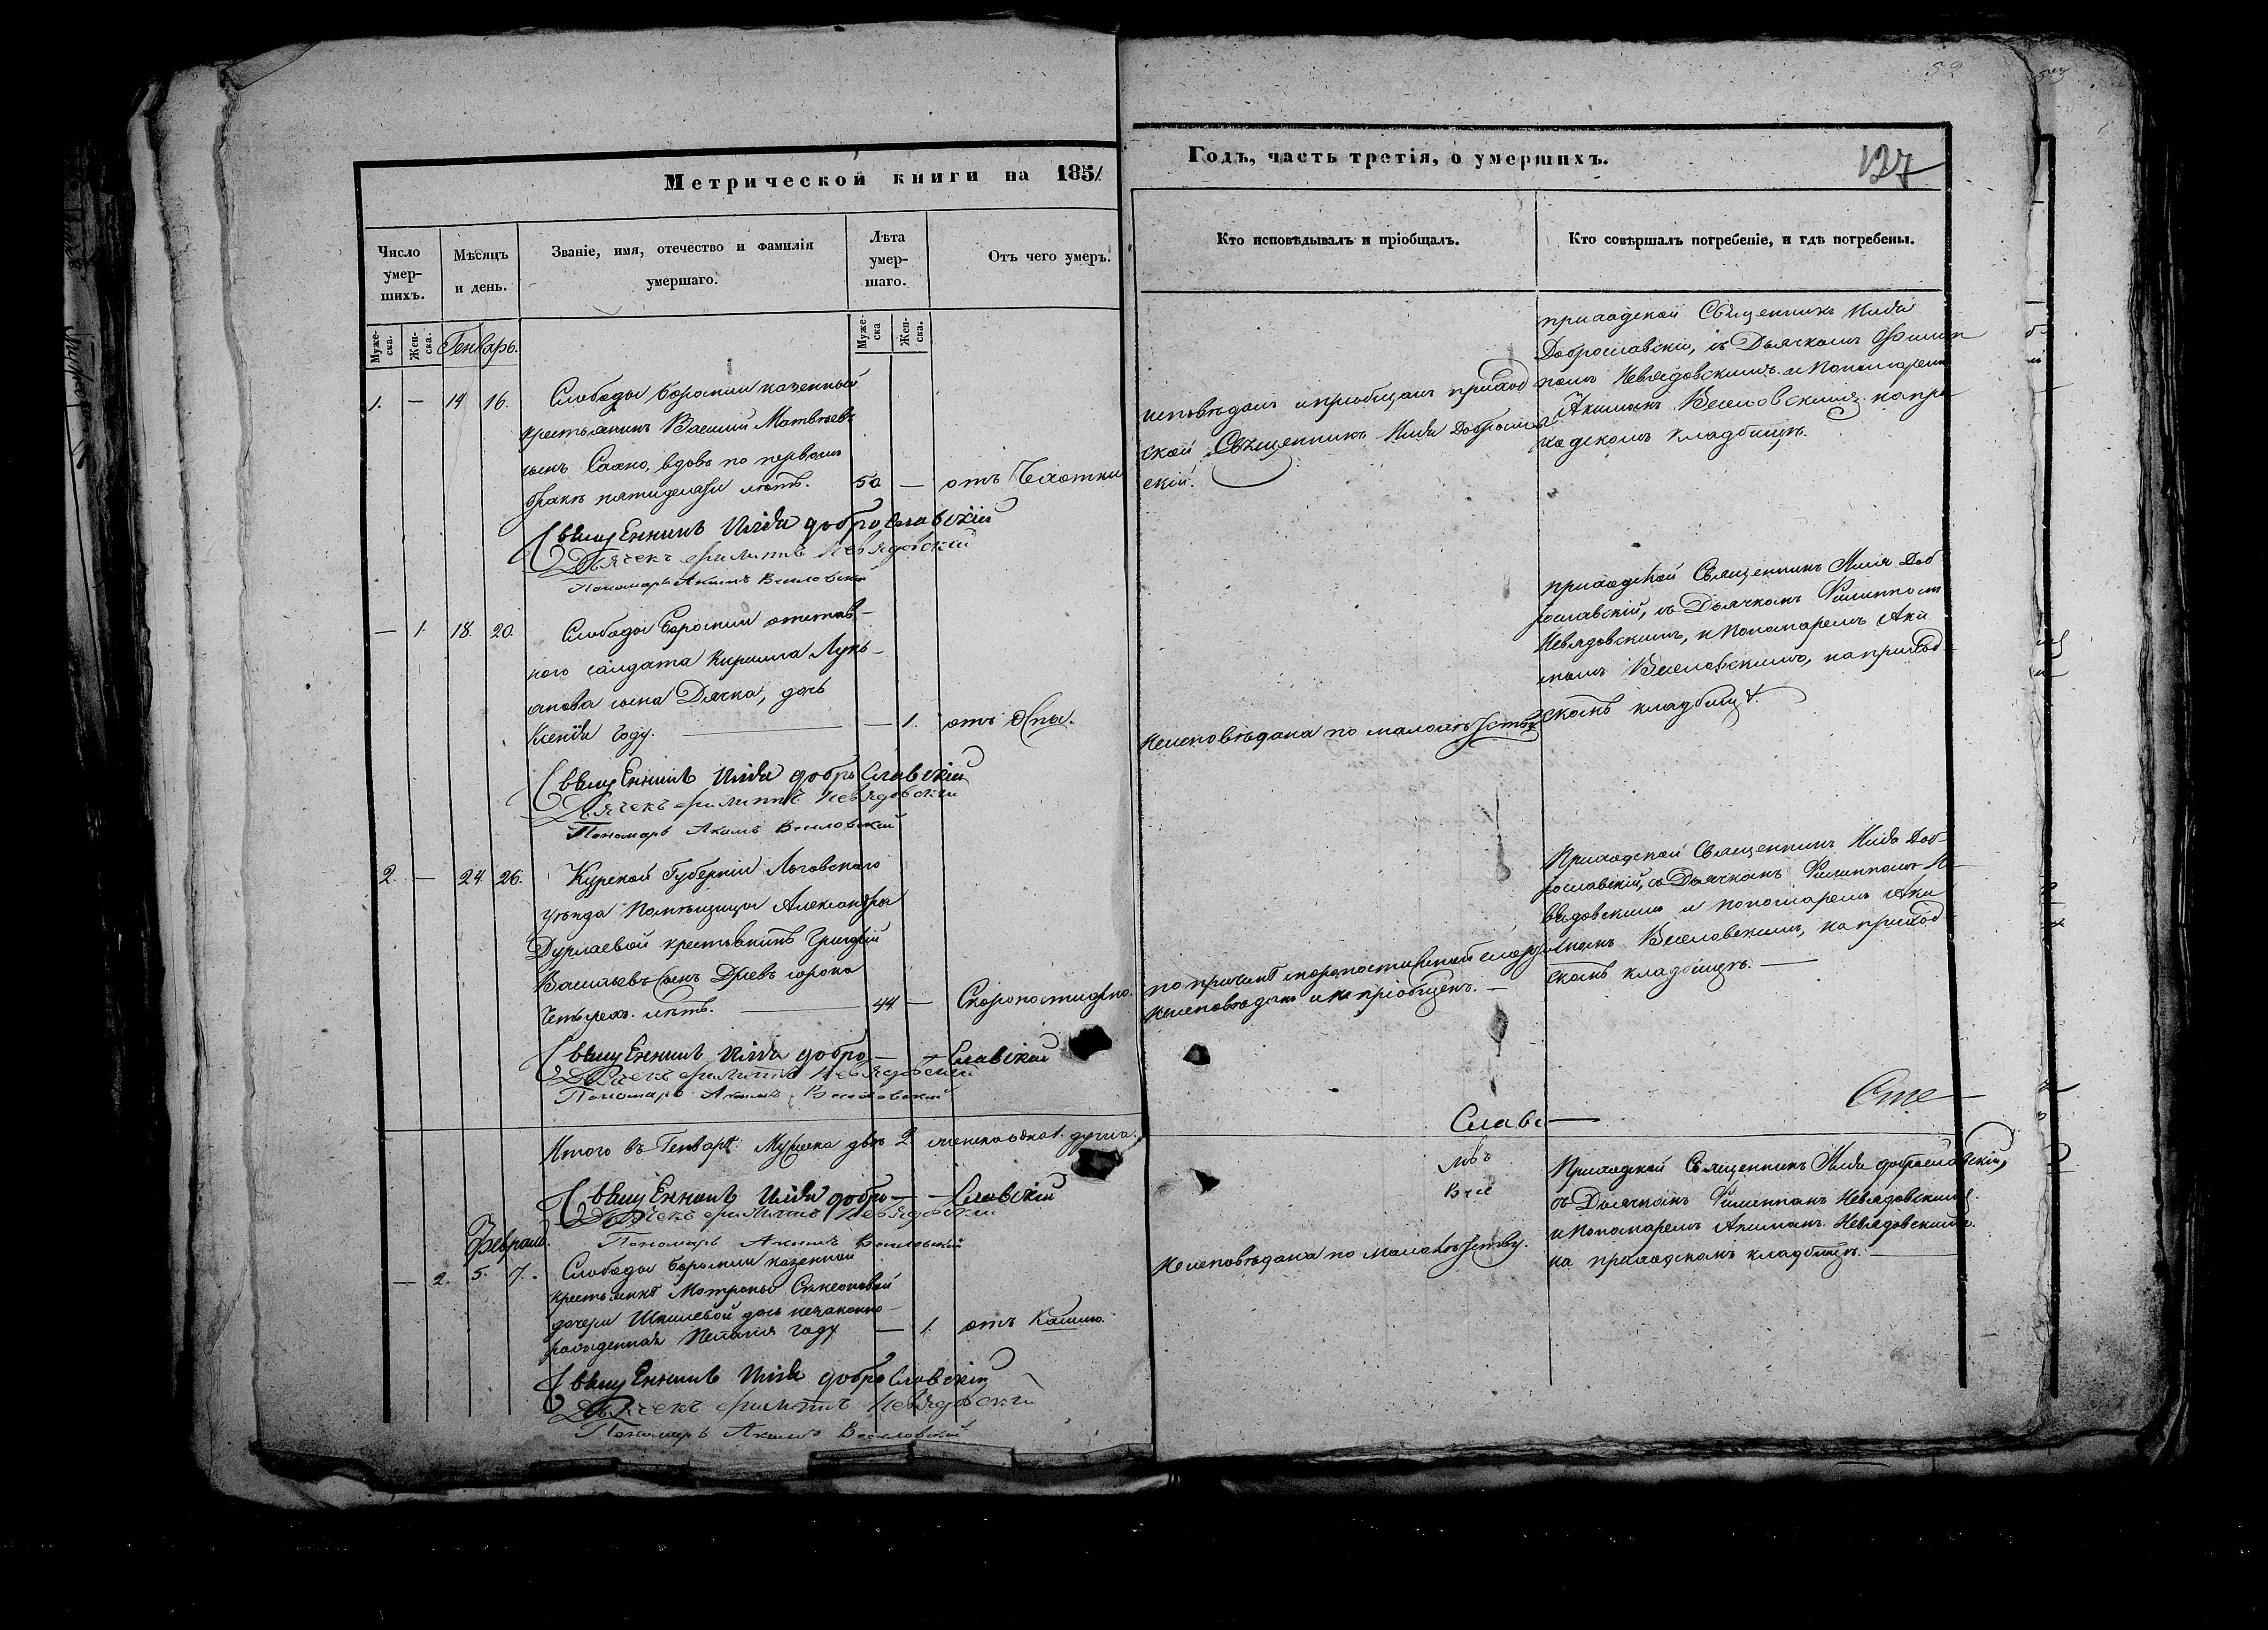 52
Метрической книги на 1851
Годъ, часть третія, о умершихъ.
127
Число умер-шихъ.
Мѣсяцъ и день.
Званіе, имя, отечество и фамилія умершаго.
Лѣта умер-шаго.
Отъ чего умеръ.
Кто исповѣдывалъ и пріобщалъ.
Кто совершалъ погребеніе, и гдѣ погребены.
Муже-ска.
Жен-ска.
Муже-ска
Жен-ска.
Генварь.
1. — 14 16.
Слободы Боромли казенный
крестьянинъ Василій Матвѣевъ
сынъ Сахно, вдовъ по первомъ
бракѣ пятидесяти лѣтъ. 50 — отъ Чахотки
исповѣдалъ и пріобщалъ приход
ской Священникъ Илія Доброслав
скій.
приходской Священникъ Илія
Доброславскій, съ Дьячкомъ Филип
помъ Невядовскимъ и Пономаремъ
Акимомъ Веселовскимъ на при
ходскомъ кладбищѣ.
Священникъ Илія доброславскій
Дьячекъ филиппъ Невядовский
Пономарь Акимъ Веселовский
— 1. 18. 20.
Слободы Боромли отстав-
ного салдата Кирилла Лукь-
янова сына Дячка, дочь
Ксенія году. — 1. отъ оспа.
Неисповѣдана по малолѣтству
приходской Священникъ Илія Доб
рославскій, съ Дьячкомъ Филиппомъ
Невядовскимъ, и Пономаремъ Аки
момъ Веселовскимъ, на приход
скомъ кладбищѣ.
Священникъ Илія доброславскій
Дьячекъ филиппъ Невядовский
Пономарь Акимъ Веселовский
2. — 24 26.
Курской Губерніи Льговскаго
уѣзда Помѣщицы Александры
Дурлаевой крестьянинъ Григорій
Васильевъ сынъ сорока
Четырехъ лѣтъ. 44 — Скоропостижно.
по причинѣ скоропостижной смерти
неисповѣданъ и не пріобщенъ. —
Приходской Священникъ Илія Доб-
рославскій, съ Дьячкомъ Филиппомъ Не-
вядовскимъ и Пономаремъ Аки
момъ Веселовскимъ, на приход
скомъ кладбищѣ. —
Священникъ Илія добро — — Славскій
Дьячекъ филиппъ Невядовский
Пономарь Акимъ Веселовский
Славс—
Итого въ Генварѣ: Мужеска двѣ 2 женска одна 1. душа.
Священникъ Илія добро — — Славскій
Дьячекъ филиппъ Невядовский
Пономарь Акимъ Веселовский
Февраль.
— 2. 5. 7.
Слободы Боромли казенной
крестьянки Матроны Симеоновой
дочери Шпилевой дочь незаконно-
рожденная Пелагія году — 1. отъ Кашлю.
Неисповѣдана по малолѣтству.
Приходской Священникъ Илія доброславскій,
съ Дьячкомъ Филиппомъ Невядовскимъ
и Пономаремъ Акимомъ Невядовскимъ.
на приходскомъ кладбищѣ. —
Священникъ Илія доброславскій
Дьячекъ филиппъ Невядовский
Пономарь Акимъ Веселовский